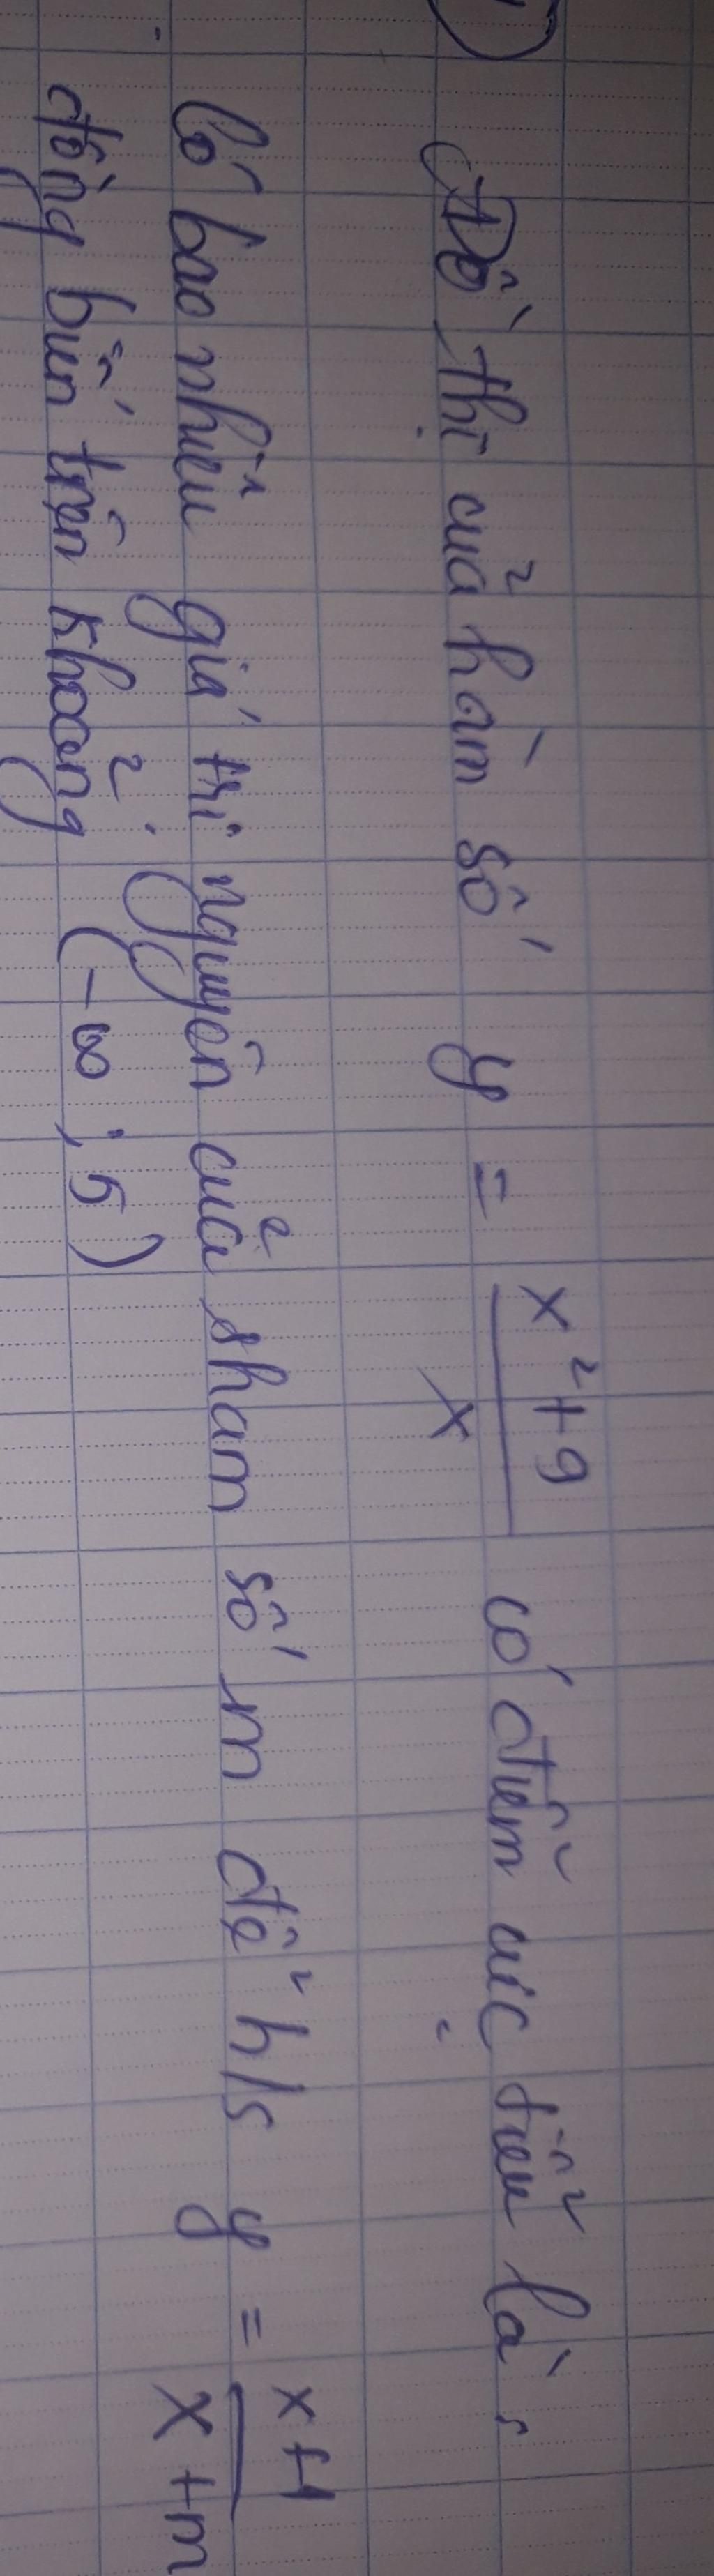 Đồ thị của hàm số y = \frac{x^2+9}{x} có điểm cực tiểu là:
Có bao nhiêu giá trị nguyên của tham số m để h/s y = \frac{x+4}{x+m}
đồng biến trên khoảng (-∞; 5)